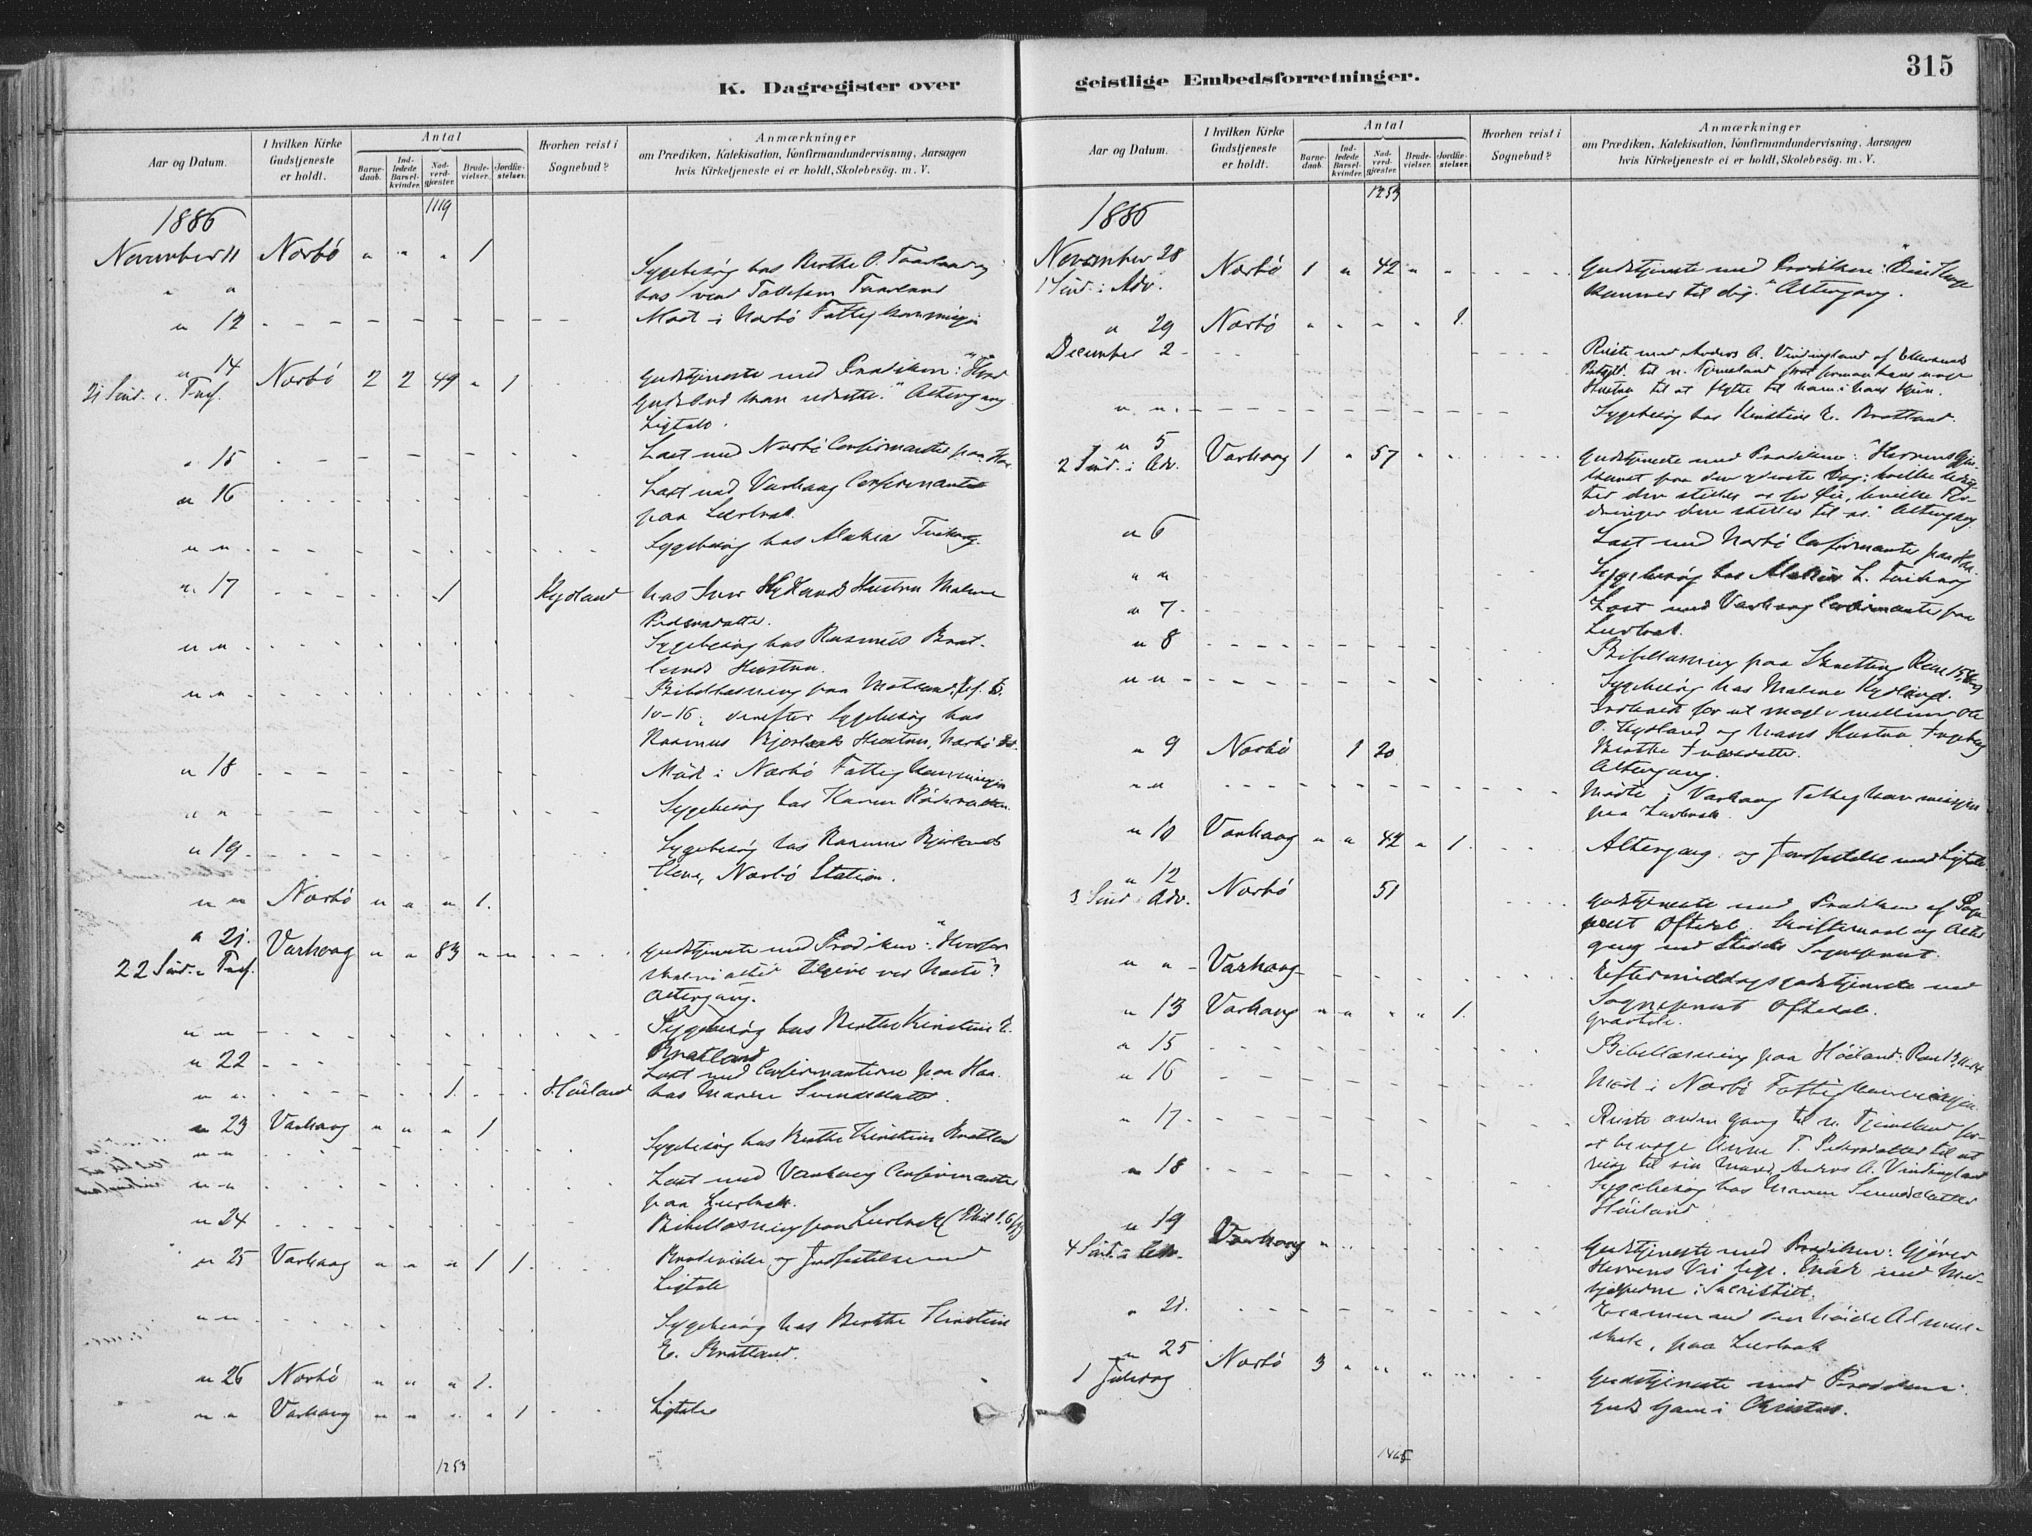 K. Dagregister over
Aar og Datum.
I hvilken Kirke Gudstjeneste er holdt.
Antal
Barnedaab.
Indledede Barselkvinder.
Nadverdgjæster.
Brudevielser.
Jordfæstelser.
Hvorhen reist i Sognebud?
Anmærkninger
om Prædiken, Katekisation, Konfirmandundervisning, Aarsagen
hvis Kirketjeneste ei er holdt, Skolebesøg. m. V.
1119
1886
November 11 Nærbø " " " 1 Sygebesøg hos Berthe O. Taarland og
" " hos Svend Tollefsen Taarland
" 12 Møde i Nærbø Fattigkommission
" 14
21 Sind. e. Tref. Nærbø 2 2 49 " 1 Gudstjeneste med Prædiken: "
Altergang.
Ligtale.
" 15 Læst med Nærbø Confirmanter paa Haa
" 16 Læst med Varhaug Confirmanter
paa Lerbrek.
" " Sygebesøg hos
" 17 1 Kydland hos Hustru Malene
Pedersdatter.
" " Sygebesøg hos Rasmus
Hustru.
" " Bibellæsning paa
10-16, derefter Sygebesøg hos
Rasmus Hustru, Nærbø St.
" 18 Møde i Nærbø Fattigkommission
" " Sygebesøg hos Karen
" 19 Sygebesøg hos Rasmus
Kone, Nærbø Station.
" " Nærbø " " " 1.
" 21.
22 Sind. e. Tref. Varhaug " " 83 " " Gudstjeneste med Prædiken: "Hvorfor
skal vi altid tilgive vor Næste"?
Altergang.
" " Sygebesøg hos Berthe Kirstine E.
Bratland
" 22 Læst med Confirmanterne paa Haa.
" " 1. Høiland hos Maren Svendsdatter.
" 23 Varhaug " " " 1
" " Sygebesøg hos Berthe Kirstine Bratland
" " Læst med Varhaug Confirmanter
paa Lerbrek.
" 24 Bibellæsning paa Lerbrek (Phil 1.6
" 25 Varhaug " " " 1 1. Brudevielse og Jordfæstelse med
Ligtale
" " Sygebesøg hos Berthe Kirstine
E. Bratland.
" 26 Nærbø " " " 1.
" " Varhaug " " " " 1 Ligtale
1253
geistlige Embedsforretninger.
315
Aar og Datum.
I hvilken Kirke Gudstjeneste er holdt.
Antal
Barnedaab.
Indledede Barselkvinder.
Nadverdgjæster.
Brudevielser.
Jordfæstelser.
Hvorhen reist i Sognebud?
Anmærkninger
om Prædiken, Katekisation, Konfirmandundervisning, Aarsagen
hvis Kirketjeneste ei er holdt, Skolebesøg. m. V.
1253
1886
November 28
1 Sind. i Adv. Nærbø 1 " 42 " " Gudstjeneste med Prædiken: "Din Konge
kommer til dig." Altergang.
" 29 Nærbø " " " " 1.
December 2 Reiste med Anders A. Vindingland af
til n. Fjermeland for at formaa hans
Hustru til at flytte til ham i hans Hjem.
" " Sygebesøg hos Kirstine E. Bratland.
" 5
2 Sind. i Adv. Varhaug 1 " 57 " " Gudstjeneste med Prædiken: "Herrens Gjen-
komst paa den yderste Dag;
der stilles os for Øie, hvilke
den stiller til os." Altergang.
" 6 Læst med Nærbø Confirmanter paa Haa.
" " Sygebesøg hos
" 7 Læst med Varhaug Confirmanter paa
Lerbrek.
" 8 Bibellæsning paa Skretting Rom 15,
" " Sygebesøg hos Malene Kydland.
Indkaldt for at mægle mellem Ole
O. Kydland og hans Hustru Ingeborg
Berthe Iversdatter.
" 9 Nærbø 1 20 Altergang.
" " Møde i Varhaug Fattigkommission
paa Lerbrek.
" 10 Varhaug " " 42 " 1. Altergang og Jordfæstelse med Ligtale
" 12
3 Sind. i Adv. Nærbø 51 Gudstjeneste med Prædiken af Sogne-
prest Oftedal. Skriftemaal og Alter-
gang med Stedets Sogneprest.
" " Varhaug Eftermiddagsgudstjeneste ved
Sogneprest Oftedal.
" 13 Varhaug " " " " 1. Gravtale.
" 15 Bibellæsning paa Høiland: Rom 13, 11-14
" 16 Møde i Nærbø Fattigkommission.
" 17. Reiste anden Gang til n. Fjermeland for
at bevæge Anne T. Pedersdatter til at
reise til sin Mand, Anders A. Vindingland
" 18 Sygebesøg hos Maren Svendsdatter
Høiland
" 19
4 Sind. i Adv. Varhaug " " Gudstjeneste med Prædiken: Gjører
Herrens Vei lige. Møde med Med-
hjelperne i Sacristiet.
" 21. Examen ved den høiere Almue-
skole, paa Lerbrek
" 25
1 Juledag Nærbø 3 " " " " Gudstjeneste med Prædiken:
Guds Gave i Christus.
1465